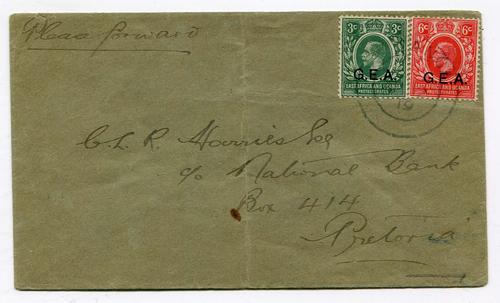 Please forward
3c 3c
G.E.A.
EAST AFRICA AND UGANDA
PROTECTORATES
6c 6c
G.E.A.
EAST AFRICA AND UGANDA
PROTECTORATES
C. L. R. Harries Esq
c/o National Bank
Box 414
Pretoria